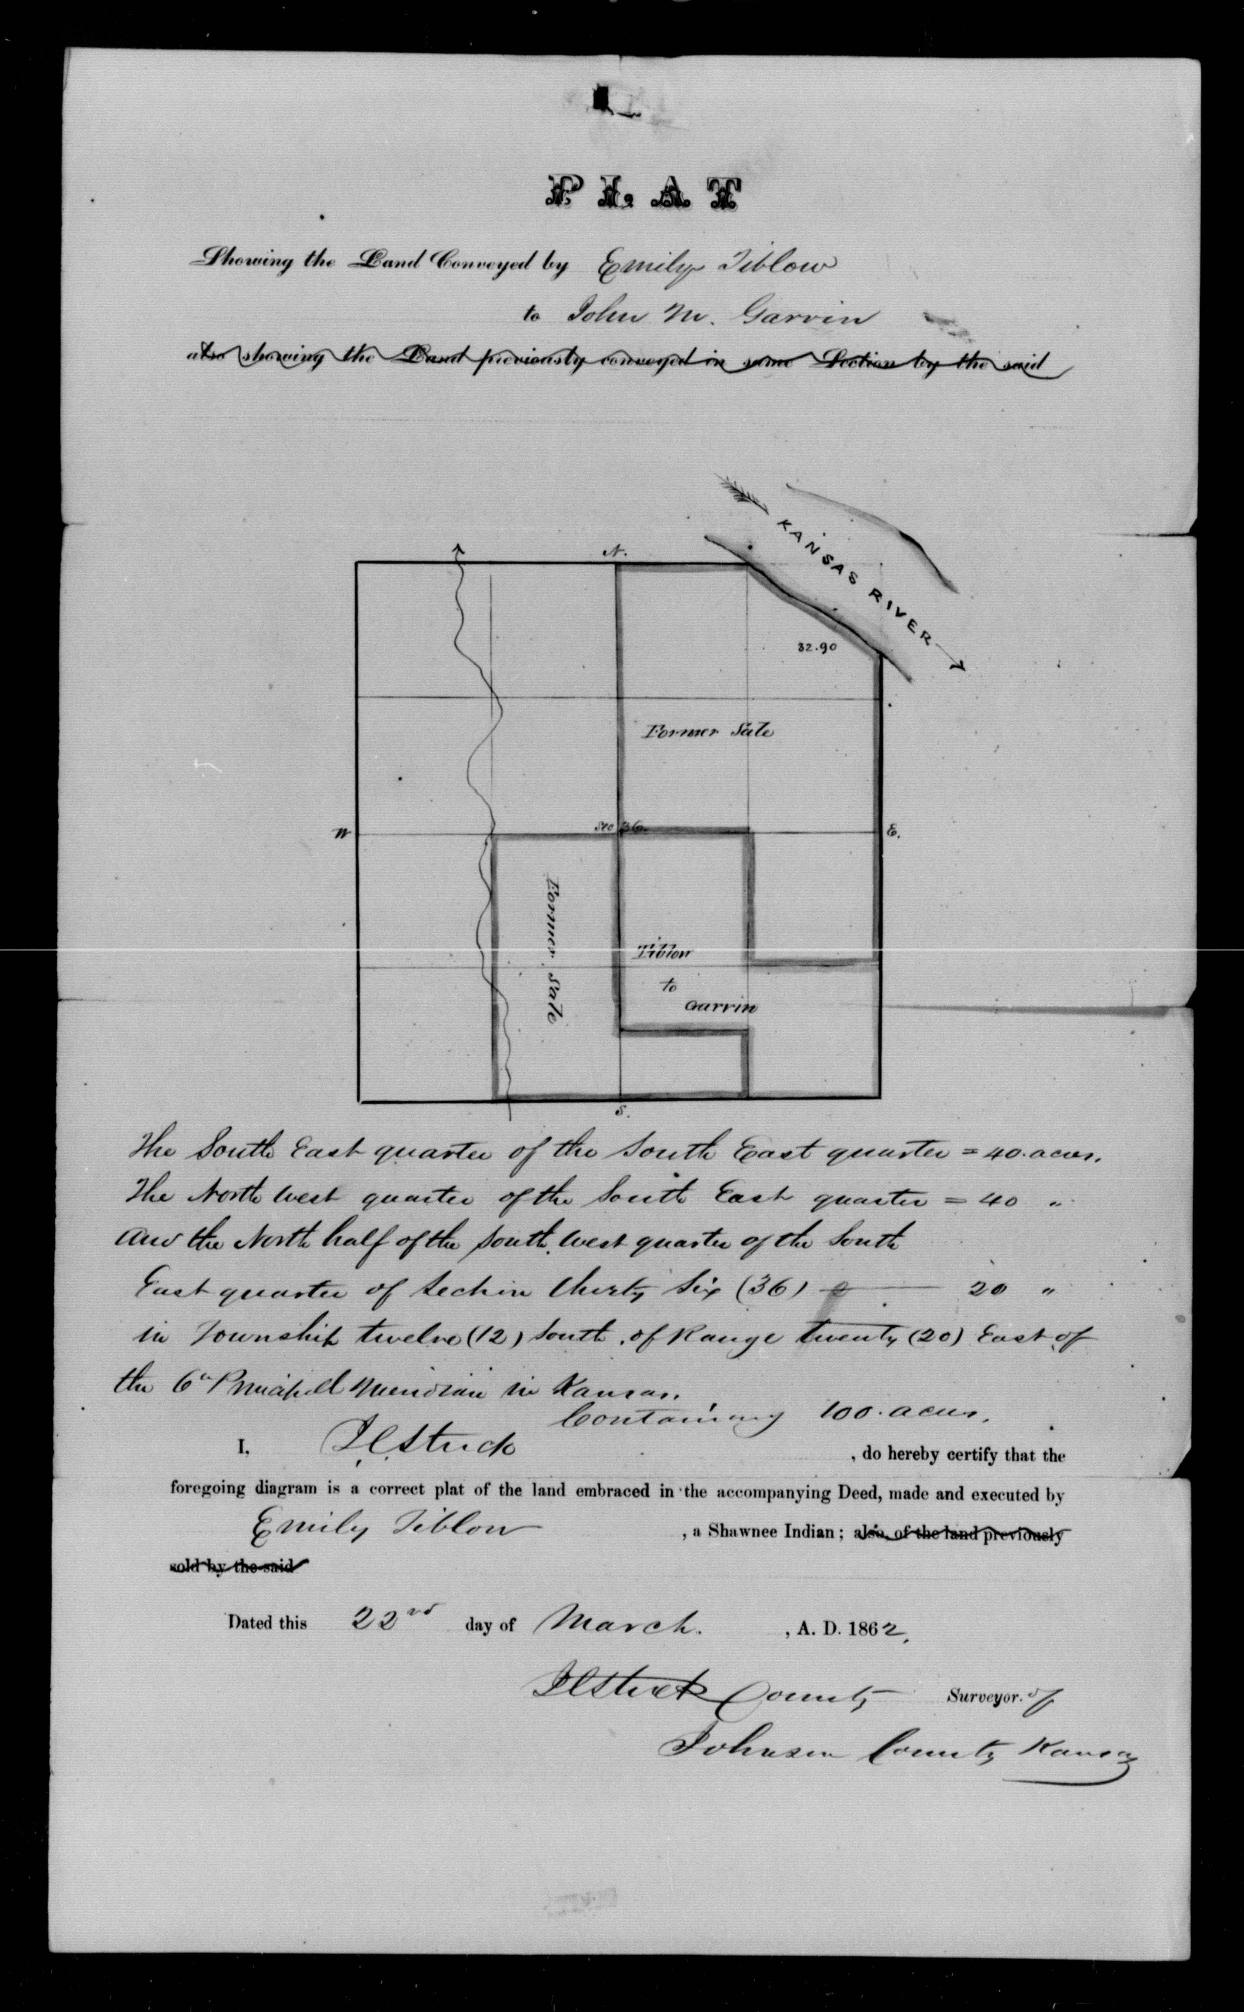 PLAT
Showing the Land Conveyed by Emily Tiblow
to John M. Garvin
also showing the Land previously conveyed in same Section by the said
KANSAS RIVER
N.
32.90
Former Sale
W
Sec 36.
E.
Former Sale
Tiblow
to
Garvin
S.
The South East quarter of the South East quarter = 40. acres.
The North West quarter of the South East quarter = 40 "
and the North half of the South West quarter of the South
East quarter of Section thirty six (36) 20 "
in Township twelve (12) South, of Range twenty (20) East of
the 6th Principal Meridian in Kansas.
Containing 100. acres.
I, , do hereby certify that the
foregoing diagram is a correct plat of the land embraced in the accompanying Deed, made and executed by
Emily Tiblow , a Shawnee Indian; also, of the land previously
sold by the said
Dated this 22nd day of March. , A. D. 1862.
County Surveyor of
Johnson County Kansas